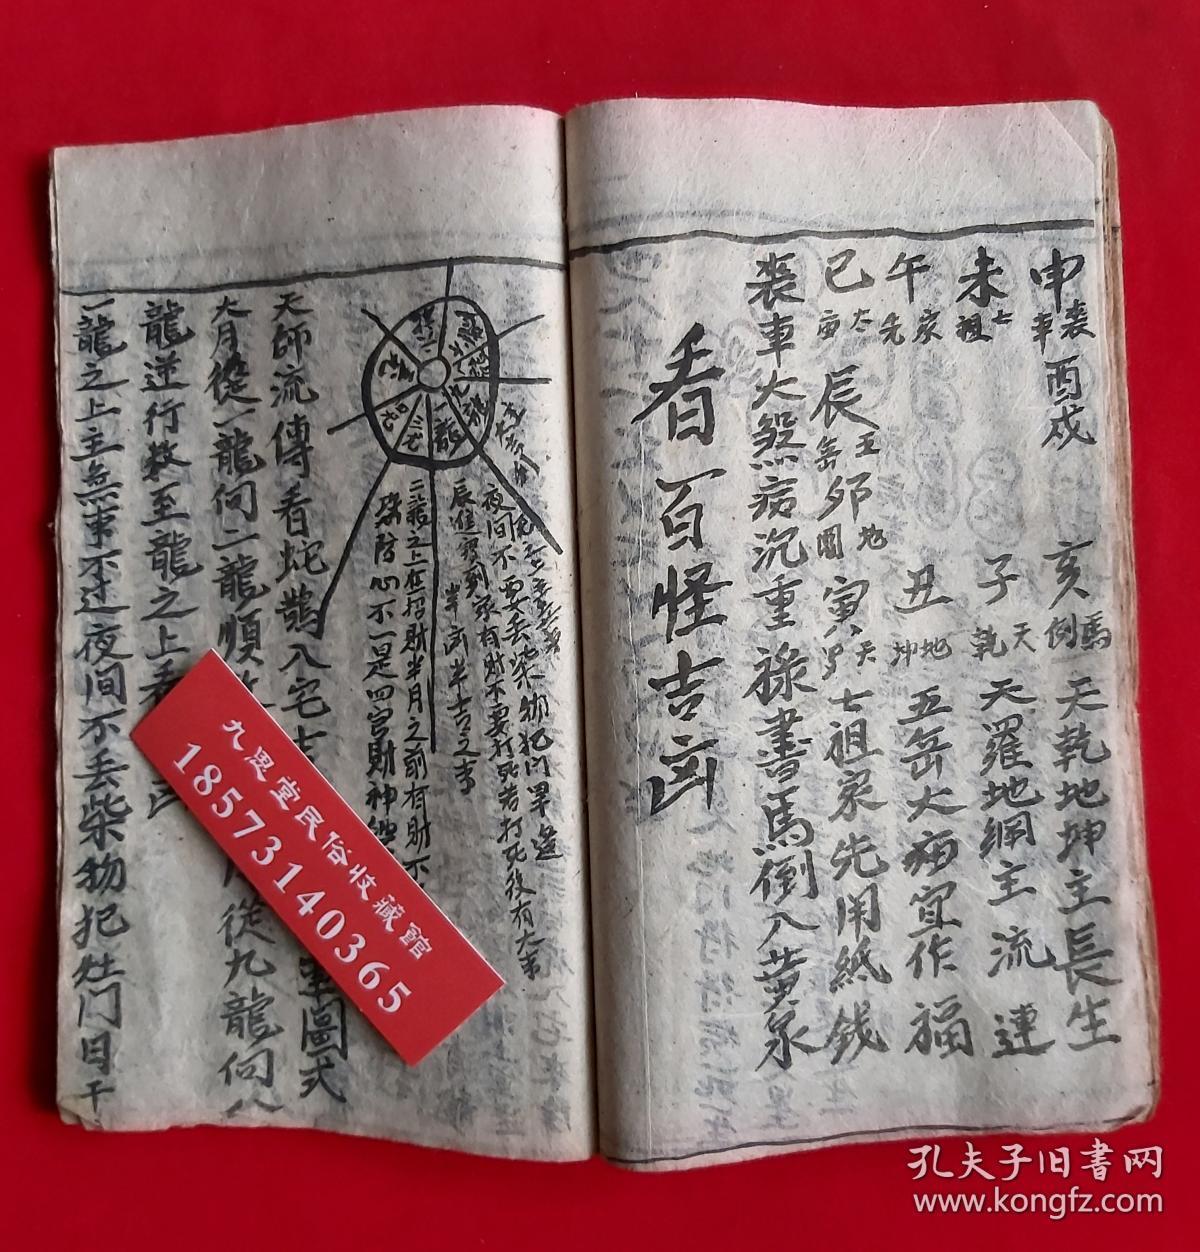 申 喪車 酉 戌 亥 馬倒 天乾地坤主長生
未 七祖 子 天乾 天羅地網主流連
午 家先 丑 地坤 五岳大病宜作福
巳 太 辰 五岳 卯 地 寅 天 七祖家先用紙錢
喪車大煞病沉重祿書馬倒入黄泉
看百怪吉凶
夜间不要丢柴物把门旱
辰進寶到家有財不要打死若打死後有大事
半凶半吉之事
二龍之上在招財半月之前有財不
防心不一是四官財神
一龍
天師流傳看蛇鵲入宅
圖式
大月從一龍向二龍順
從九龍向八
龍逆行数至龍之上看
一龍之上主無事不过夜间不丢柴物把灶门日干
九思堂民俗收藏館
18573140365
孔夫子旧書网
www.kongfz.com